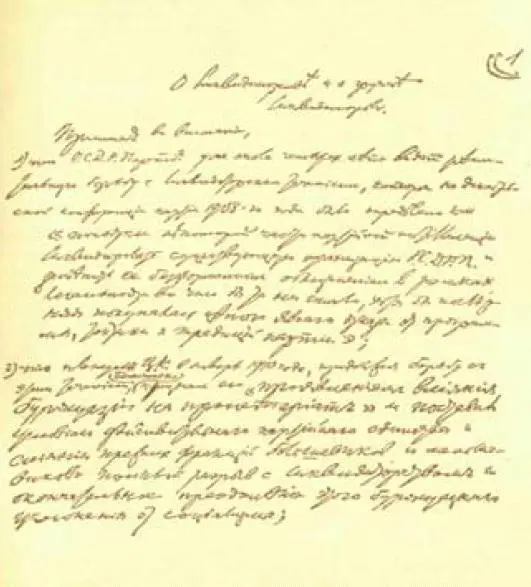 О ликвидаторствѣ и о группѣ
ликвидаторовъ.
Принимая во вниманіе,
1) что Р.С.Д.Р. Партія уже около четырех лѣт ведет рѣши-
тельную борьбу с ликвидаторским теченіем, которое на декабрь-
ской конференціи партіи 1908-го года было опредѣлено как
попытки нѣкоторой части партійной интеллигенціи
ликвидировать существующую организацію РСДРП и
замѣнить ее безформенным объединеніем в рамках
легальности во что бы то ни стало, хотя бы послѣд-
няя покупалась цѣною явного отказа от програм-
мы, тактики и традицій партіи»;
2) что пленум Ц.К. в январѣ 1910 года, продолжая борьбу с
этим теченіем, признал его проявленіем вліянія
буржуазіи на пролетаріатъ» и поставил
условіем дѣйствительного партійного единства и
сліянія прежних фракцій большевиков и меньше-
виков полный разрыв с ликвидаторством и
окончательное преодолѣніе этого буржуазного
уклоненія от соціализма;